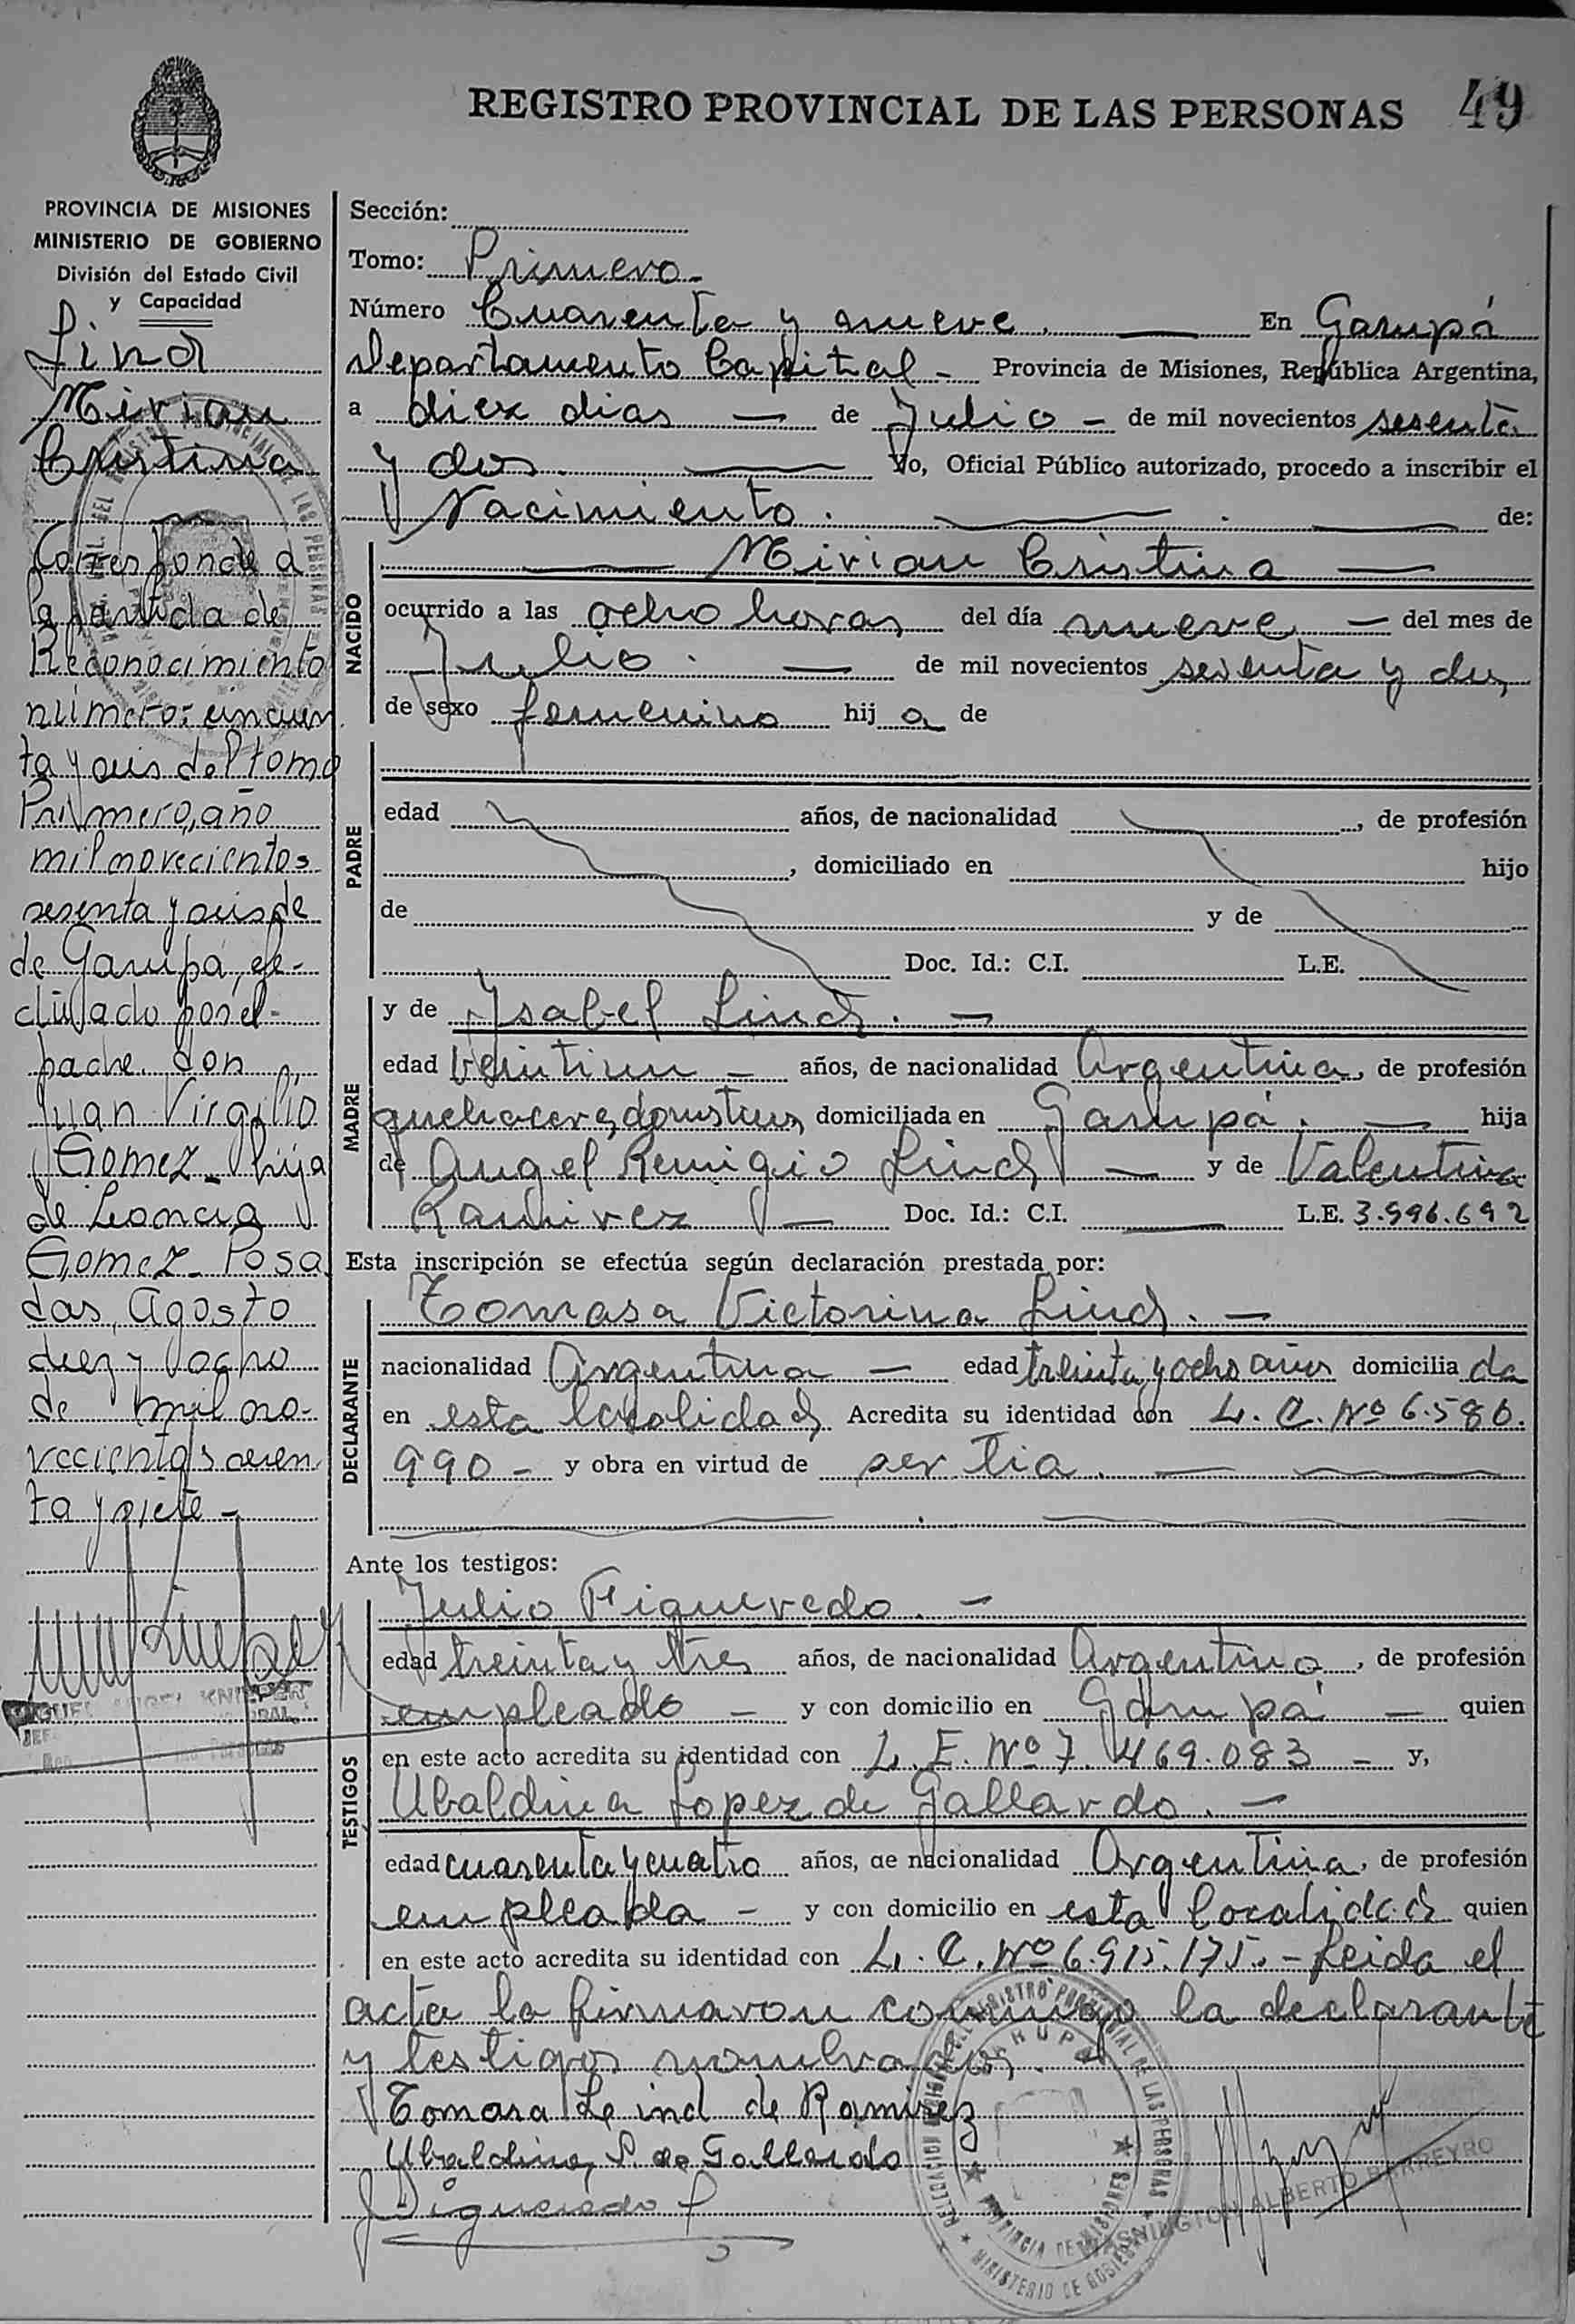 REGISTRO PROVINCIAL DE LAS PERSONAS 49
PROVINCIA DE MISIONES
MINISTERIO DE GOBIERNO
División del Estado Civil
y Capacidad
Lind
Mirian
Cristina
Corresponde a
la partida de
Reconocimiento
número: cincuen
ta y seis del tomo
Primero, año
mil novecientos
sesenta y seis de
de Garupá, efe-
ctuado por el
padre don
Juan Virgilio
Gomez - hijo
de Leoncia
Gomez - Posa
das, Agosto
diez y ocho
de mil no-
vecientos sesen
ta y siete -
MIGUEL ANGEL KNIEPERT
Sección:
Tomo: Primero -
Número Cuarenta y nueve. — En Garupá
Departamento Capital - Provincia de Misiones, República Argentina,
a diez dias — de Julio - de mil novecientos sesenta
y dos. — Yo, Oficial Público autorizado, procedo a inscribir el
Nacimiento. — . — de:
NACIDO
— Mirian Cristina —
ocurrido a las ocho horas del día nueve, — del mes de
Julio. — de mil novecientos sesenta y dos,
de sexo femenino hij a de
PADRE
edad años, de nacionalidad , de profesión
, domiciliado en hijo
de y de
Doc. Id.: C.I. L.E.
MADRE
y de Ysabel Lind. —
edad veintiun — años, de nacionalidad Argentina, de profesión
quehaceres domesticos domiciliada en Garupá. — hija
de Angel Remigio Lind — y de Valentina
Ramirez — Doc. Id.: C.I. — L.E. 3.996.692
Esta inscripción se efectúa según declaración prestada por:
DECLARANTE
Tomasa Victorina Lind. —
nacionalidad Argentina — edad treinta y ocho años domicilia da
en esta localidad, Acredita su identidad con L. C. Nº 6.580.
990 - y obra en virtud de ser tia. — —
Ante los testigos:
TESTIGOS
Julio Figueredo. —
edad treinta y tres años, de nacionalidad Argentino, de profesión
empleado — y con domicilio en Garupá — quien
en este acto acredita su identidad con L. E. Nº 7.469.083 — y,
Ubaldina Lopez de Gallardo. —
edad cuarenta y cuatro años, de nacionalidad Argentina, de profesión
empleada — y con domicilio en esta localidad quien
en este acto acredita su identidad con L. C. Nº 6.915.175. - Leida el
acta la firmaron conmigo la declarante
y testigos nombrados.
Tomasa Leind de Ramirez
Ubaldina L. de Gallardo
J Figueredo
WASHINGTON ALBERTO BARREYRO